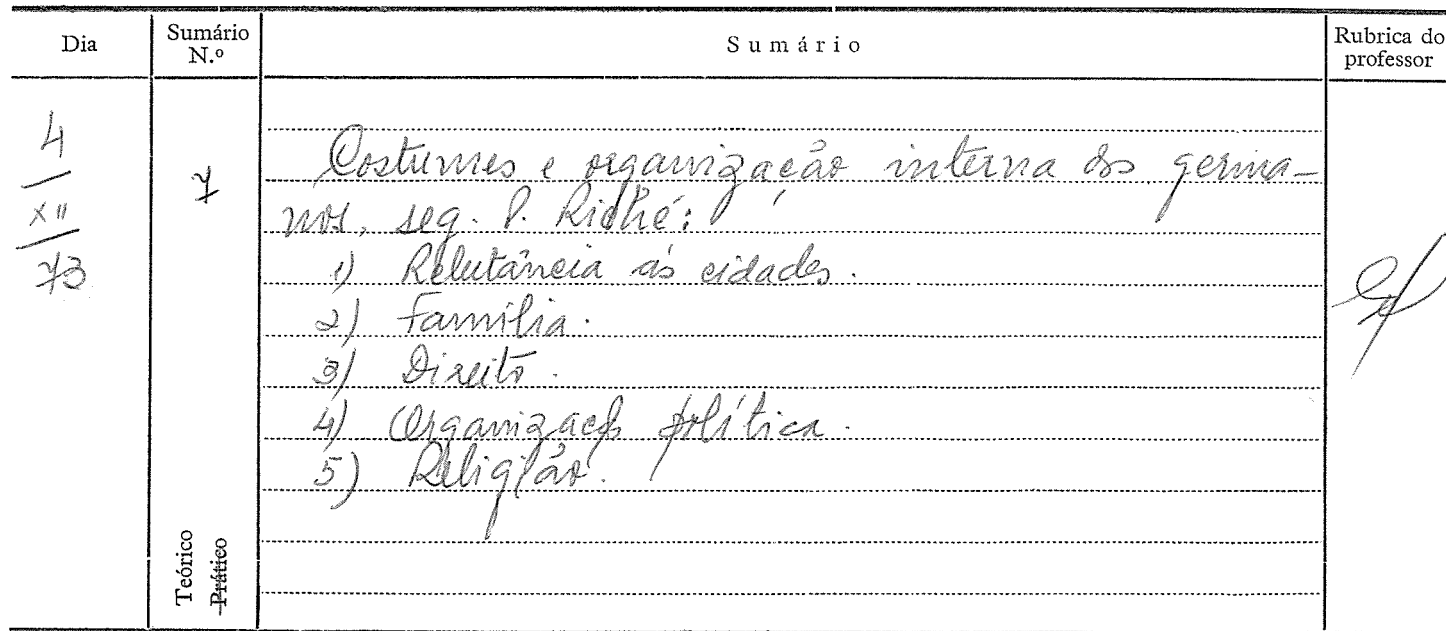 Dia
Sumário N.º
Sumário
Rubrica do professor
4
XII
73
7
Costumes e organização interna dos germa-
nos, seg. P. Riché:
1) Relutância às cidades.
2) Família.
3) Direito.
4) Organização política.
5) Religião.
Teórico
Prático